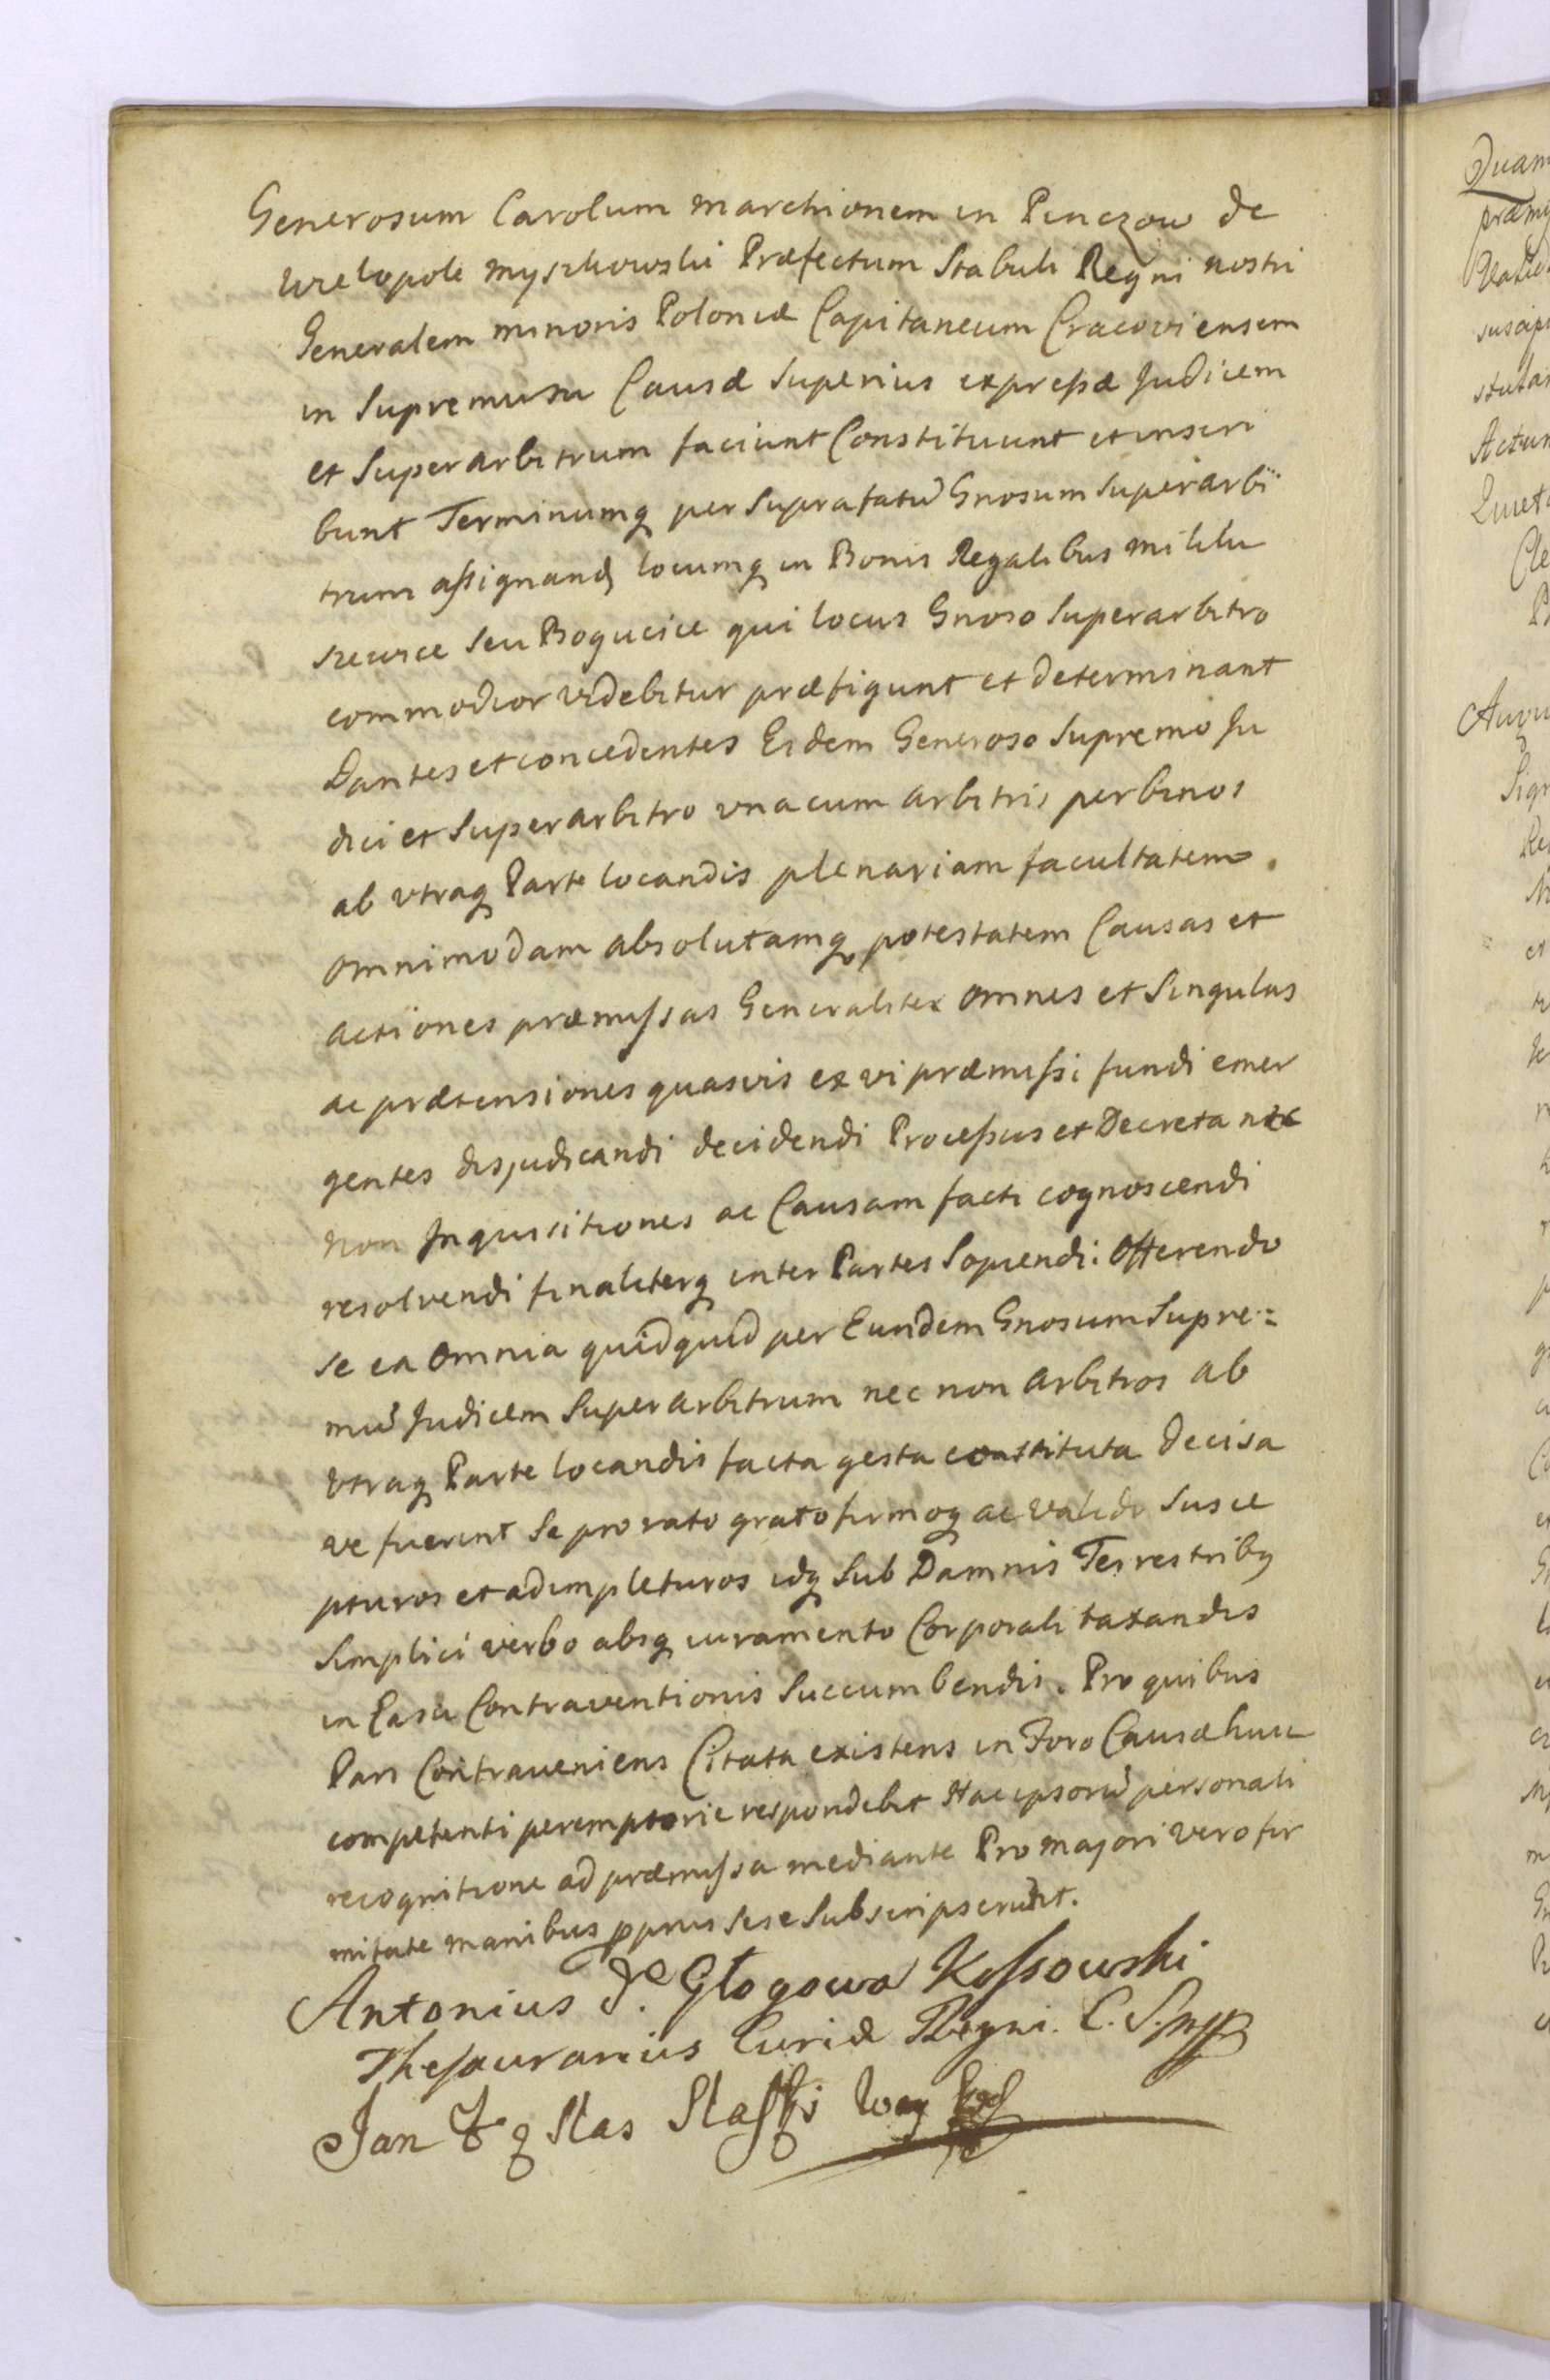 Generosum Carolum marchionem in Pinczow de
Wielopole myszkowski Præfectum Stabuli Regni nostri
Generalem minoris Poloniæ Capitaneum Cracoviensem
in Supremum Causæ Superius expressæ Judicem
et Superarbitrum faciunt Constituunt et inscri
bunt Terminumq per Suprafatũ Gnosum Superarbi
trum assignand locumq in Bonis Regalibus
seu Bogucice qui locus Gnoso Superarbitro
commodior videbitur præfigunt et determinant
Dantes et concedentes Eidem Generoso Supremo Ju
dici et Superarbitro vna cum arbitris per binos
ab vtraq Parte locandis plenariam facultatem
omnimodam absolutamq potestatem Causas et
actiones præmissas Generaliter omnes et Singulas
ac prætensiones quasvis ex vi præmissi fundi emer
gentes disjudicandi decidendi Processus et Decreta nec
non Inquisitiones ac Causam facti cognoscendi
resolvendi finaliterq inter Partes Sopiendi: Offerendo
se ea omnia quidquid per Eundem Gnosum Supre=
mũ Judicem Superarbitrum nec non arbitros ab
vtraq Parte locandis facta gesta constituta decisa
ve fuerint Se pro rato grato firmoq ac valido Susce
pturos et adimpleturos idq Sub Damnis Terrestribq
Simplici verbo absq iuramento Corporali taxandis
in Casu Contraventionis Succumbendis. Pro quibus
Pars Contraveniens Citata existens in Foro Causæ huic
competenti peremptorie respondebit Hac ipsorũ personali
recognitione ad præmissa mediante Pro majori vero fir
mitate manibus pprius sese Subscripserunt.
Antonius de Głogowa Kossowski
Thesaurarius Curiæ Regni. C. S. mpp
Jan
Quam
præmi
suscip
Actum